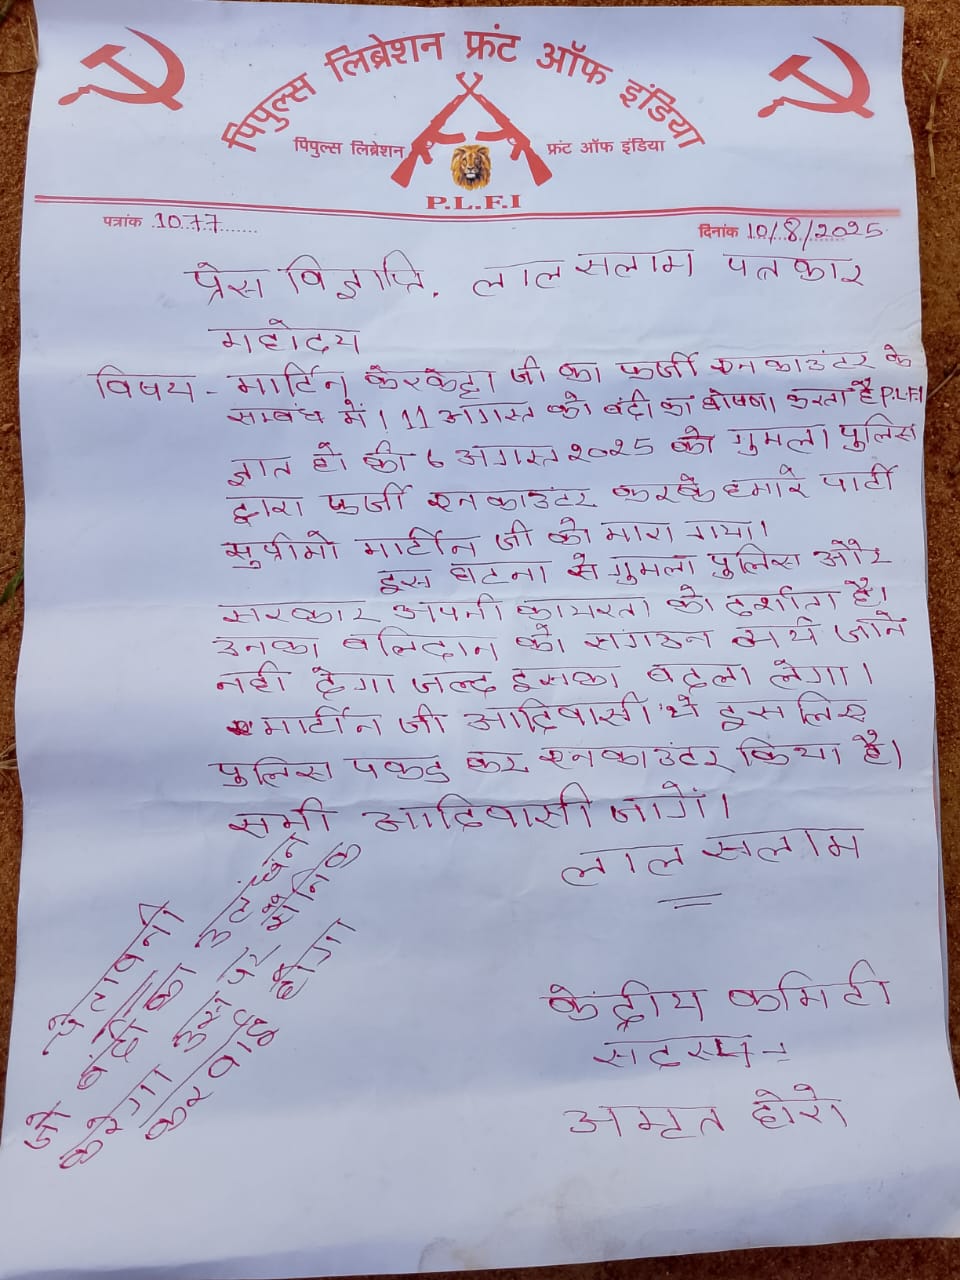 पिपुल्स लिब्रेशन फ्रंट ऑफ इंडिया
पिपुल्स लिब्रेशन फ्रंट ऑफ इंडिया
P.L.F.I
पत्रांक 1077 दिनांक 10/8/2025
प्रेस विज्ञप्ति. लाल सलाम पत्रकार
महोदय
विषय - मार्टिन केरकेट्टा जी का फर्जी एनकाउंटर के
सम्बंध में। 11 अगस्त को बंदी का घोषणा करता है P.L.F.I
ज्ञात हो की 6 अगस्त 2025 को गुमला पुलिस
द्वारा फर्जी एनकाउंटर करके हमारे पार्टी
सुप्रीमो मार्टीन जी को मारा गया।
इस घटना से गुमला पुलिस और
सरकार अपनी कायरता को दर्शाता है।
उनका बलिदान को संगठन ब्यर्थ जाने
नही देगा जल्द इसका बदला लेगा।
मार्टीन जी आदिवासी थे इस लिए
पुलिस पकड़ कर एनकाउंटर किया है।
सभी आदिवासी जागें।
लाल सलाम
चेतावनी
जो बंदी का उलंघन
करेगा उस पर सैनिक
करवाई होगा
केंद्रीय कमिटी
सदस्य -
अमृत होरो